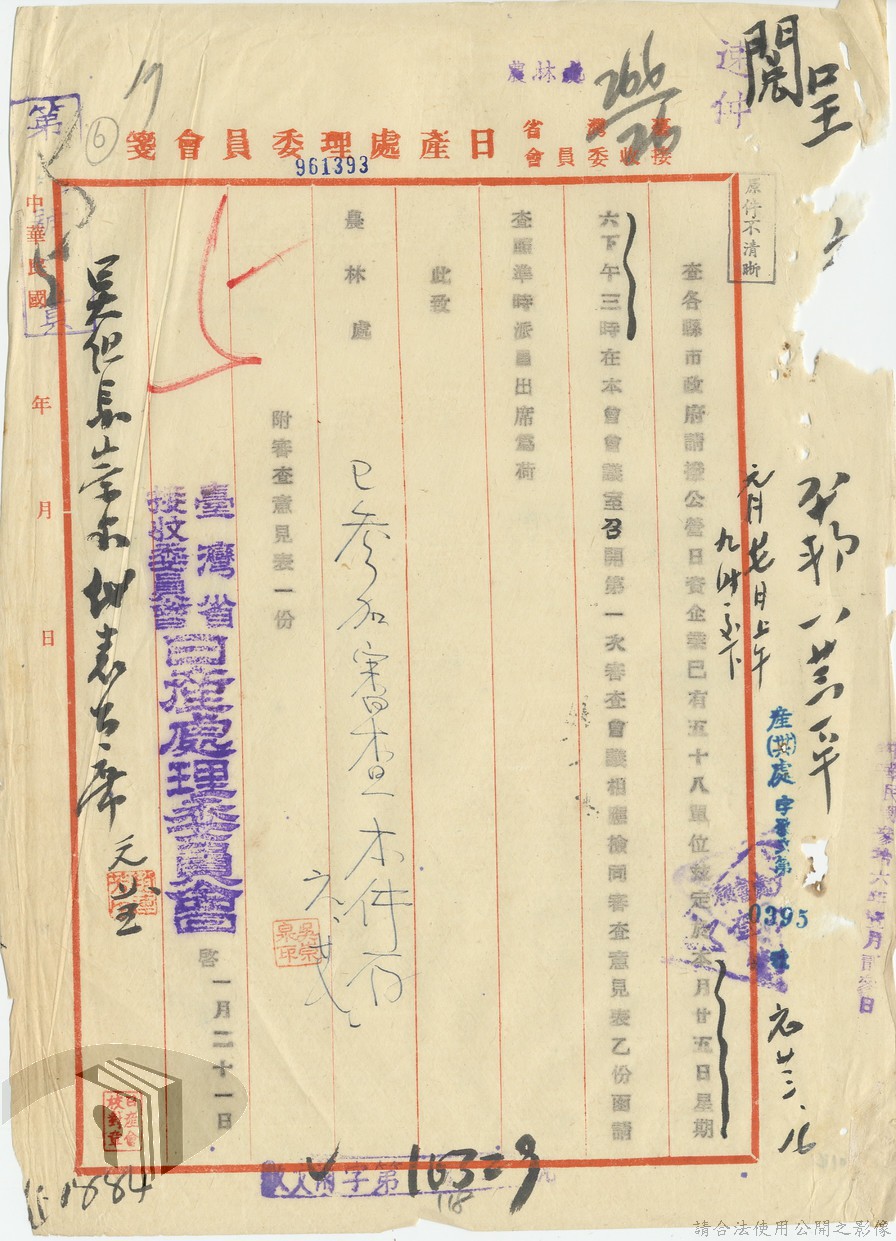 呈
閱
速件
農林處
266
臺灣省
接收委員會
日產處理委員會箋
961393
原件不清晰
產(卅六)處字第
0395
元月廿七日上午
九時
查各縣市政府請撥公營日資企業已有五十八單位茲定於本月廿五日星期
六下午三時在本會會議室召開第一次審查會議相應檢同審查意見表乙份函請
查照準時派員出席為荷
此致
農林處
附審查意見表一份
已參加審查 本件存
吳宗泉印
臺灣省
接收委員會
日產處理委員會
啓 一月二十一日
日產會校對章
代表出席
中華民國 年 月 日
第
6
17
字第1632号
118
1884
請合法使用公開之影像